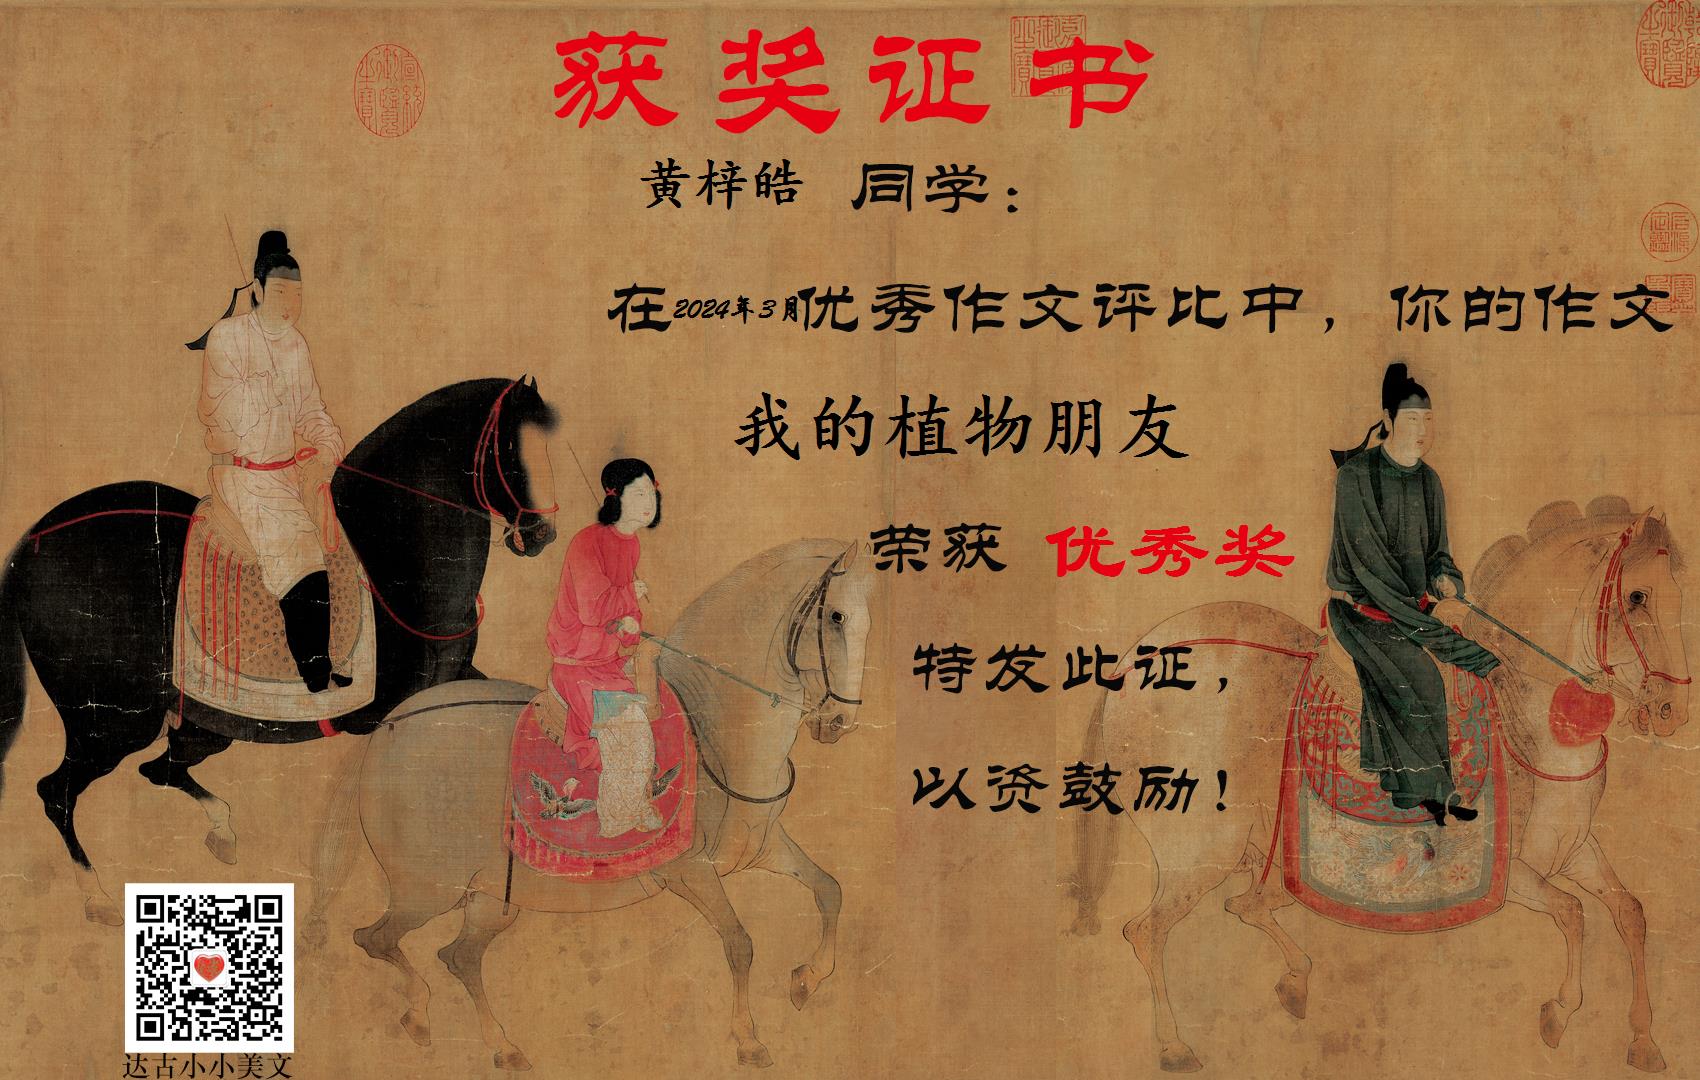 获奖证书
黄梓皓 同学：
在2024年3月优秀作文评比中，你的作文
我的植物朋友
荣获 优秀奖
特发此证，
以资鼓励！
达古小小美文